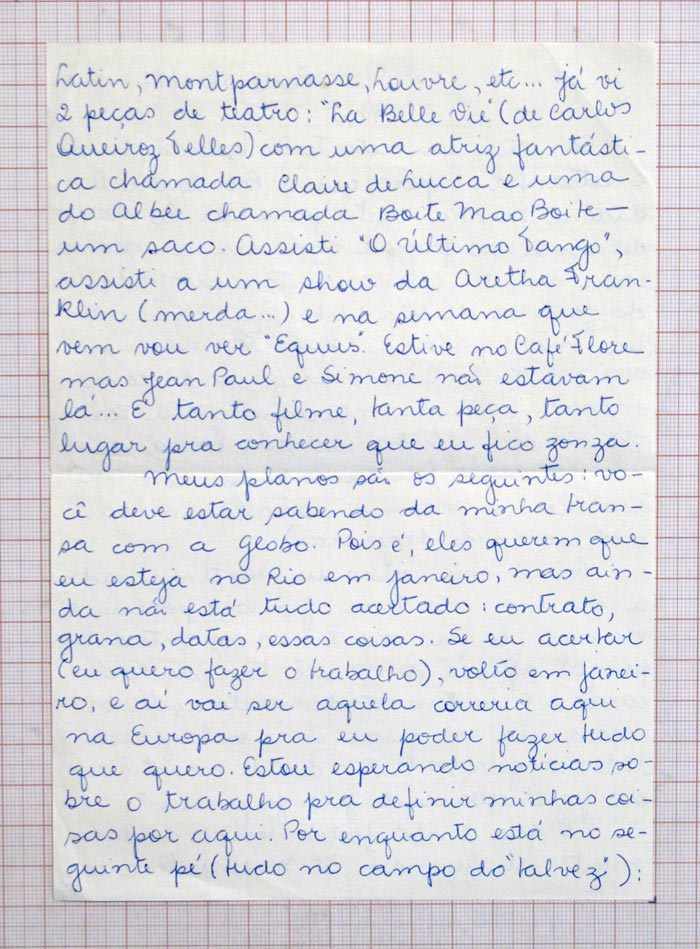 Latin, Montparnasse, Louvre, etc... já vi
2 peças de teatro: "La Belle Vie" (de Carlos
Queiroz Telles) com uma atriz fantásti-
ca chamada Claire de Lucca e uma
do Albee chamada Boite Mao Boite —
um saco. Assisti "O Último Tango",
assisti a um show da Aretha Fran-
klin (merda...) e na semana que
vem vou ver "Equus". Estive no Café Flore
mas Jean Paul e Simone não estavam
lá... É tanto filme, tanta peça, tanto
lugar pra conhecer que eu fico zonza.
Meus planos são os seguintes: vo-
cê deve estar sabendo da minha tran-
sa com a Globo. Pois é, eles querem que
eu esteja no Rio em janeiro, mas ain-
da não está tudo acertado: contrato,
grana, datas, essas coisas. Se eu acertar
(eu quero fazer o trabalho), volto em janei-
ro, e aí vai ser aquela correria aqui
na Europa pra eu poder fazer tudo
que quero. Estou esperando notícias so-
bre o trabalho pra definir minhas coi-
sas por aqui. Por enquanto está no se-
guinte pé (tudo no campo do "talvez"):